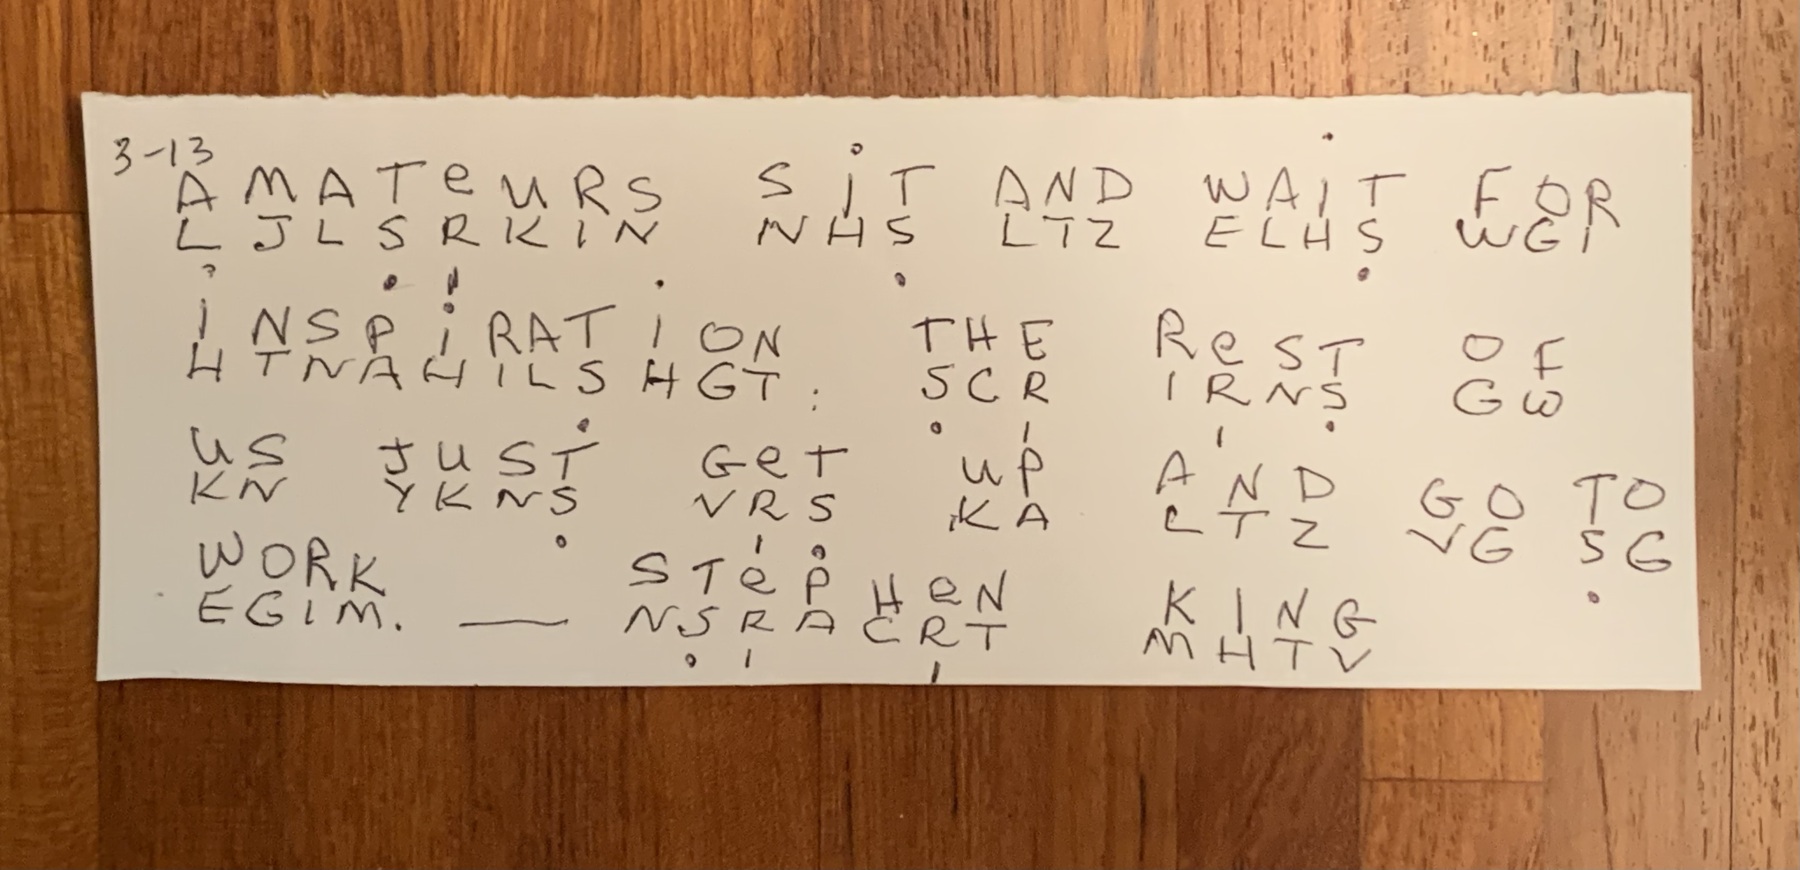 3-13
AMATeURS SiT AND WAiT FOR
LJLSRKIN NHS LTZ ELHS WGI
iNSPiRATiON THE ReST OF
HTNAHILSHGT. SCR IRNS GW
US JUST GeT UP AND GO TO
KN YKNS VRS KA LTZ VG SG
WORK STePHeN KING
EGIM. — NSRACRT MHTV